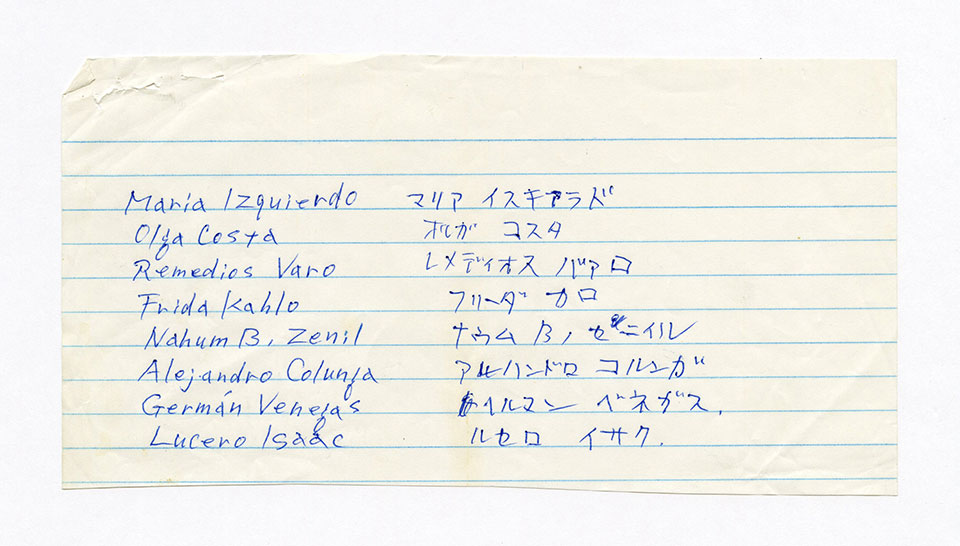 Maria Izquierdo マリア イスキアラド
Olga Costa オルガ コスタ
Remedios Varo レメディオス バアロ
Frida Kahlo フリーダ カロ
Nahum B, Zenil ナウム B, ゼニイル
Alejandro Colunga アルハンドロ コルンガ
Germán Venegas ヘイルマン ベネガス.
Lucero Isaac ルセロ イサク.